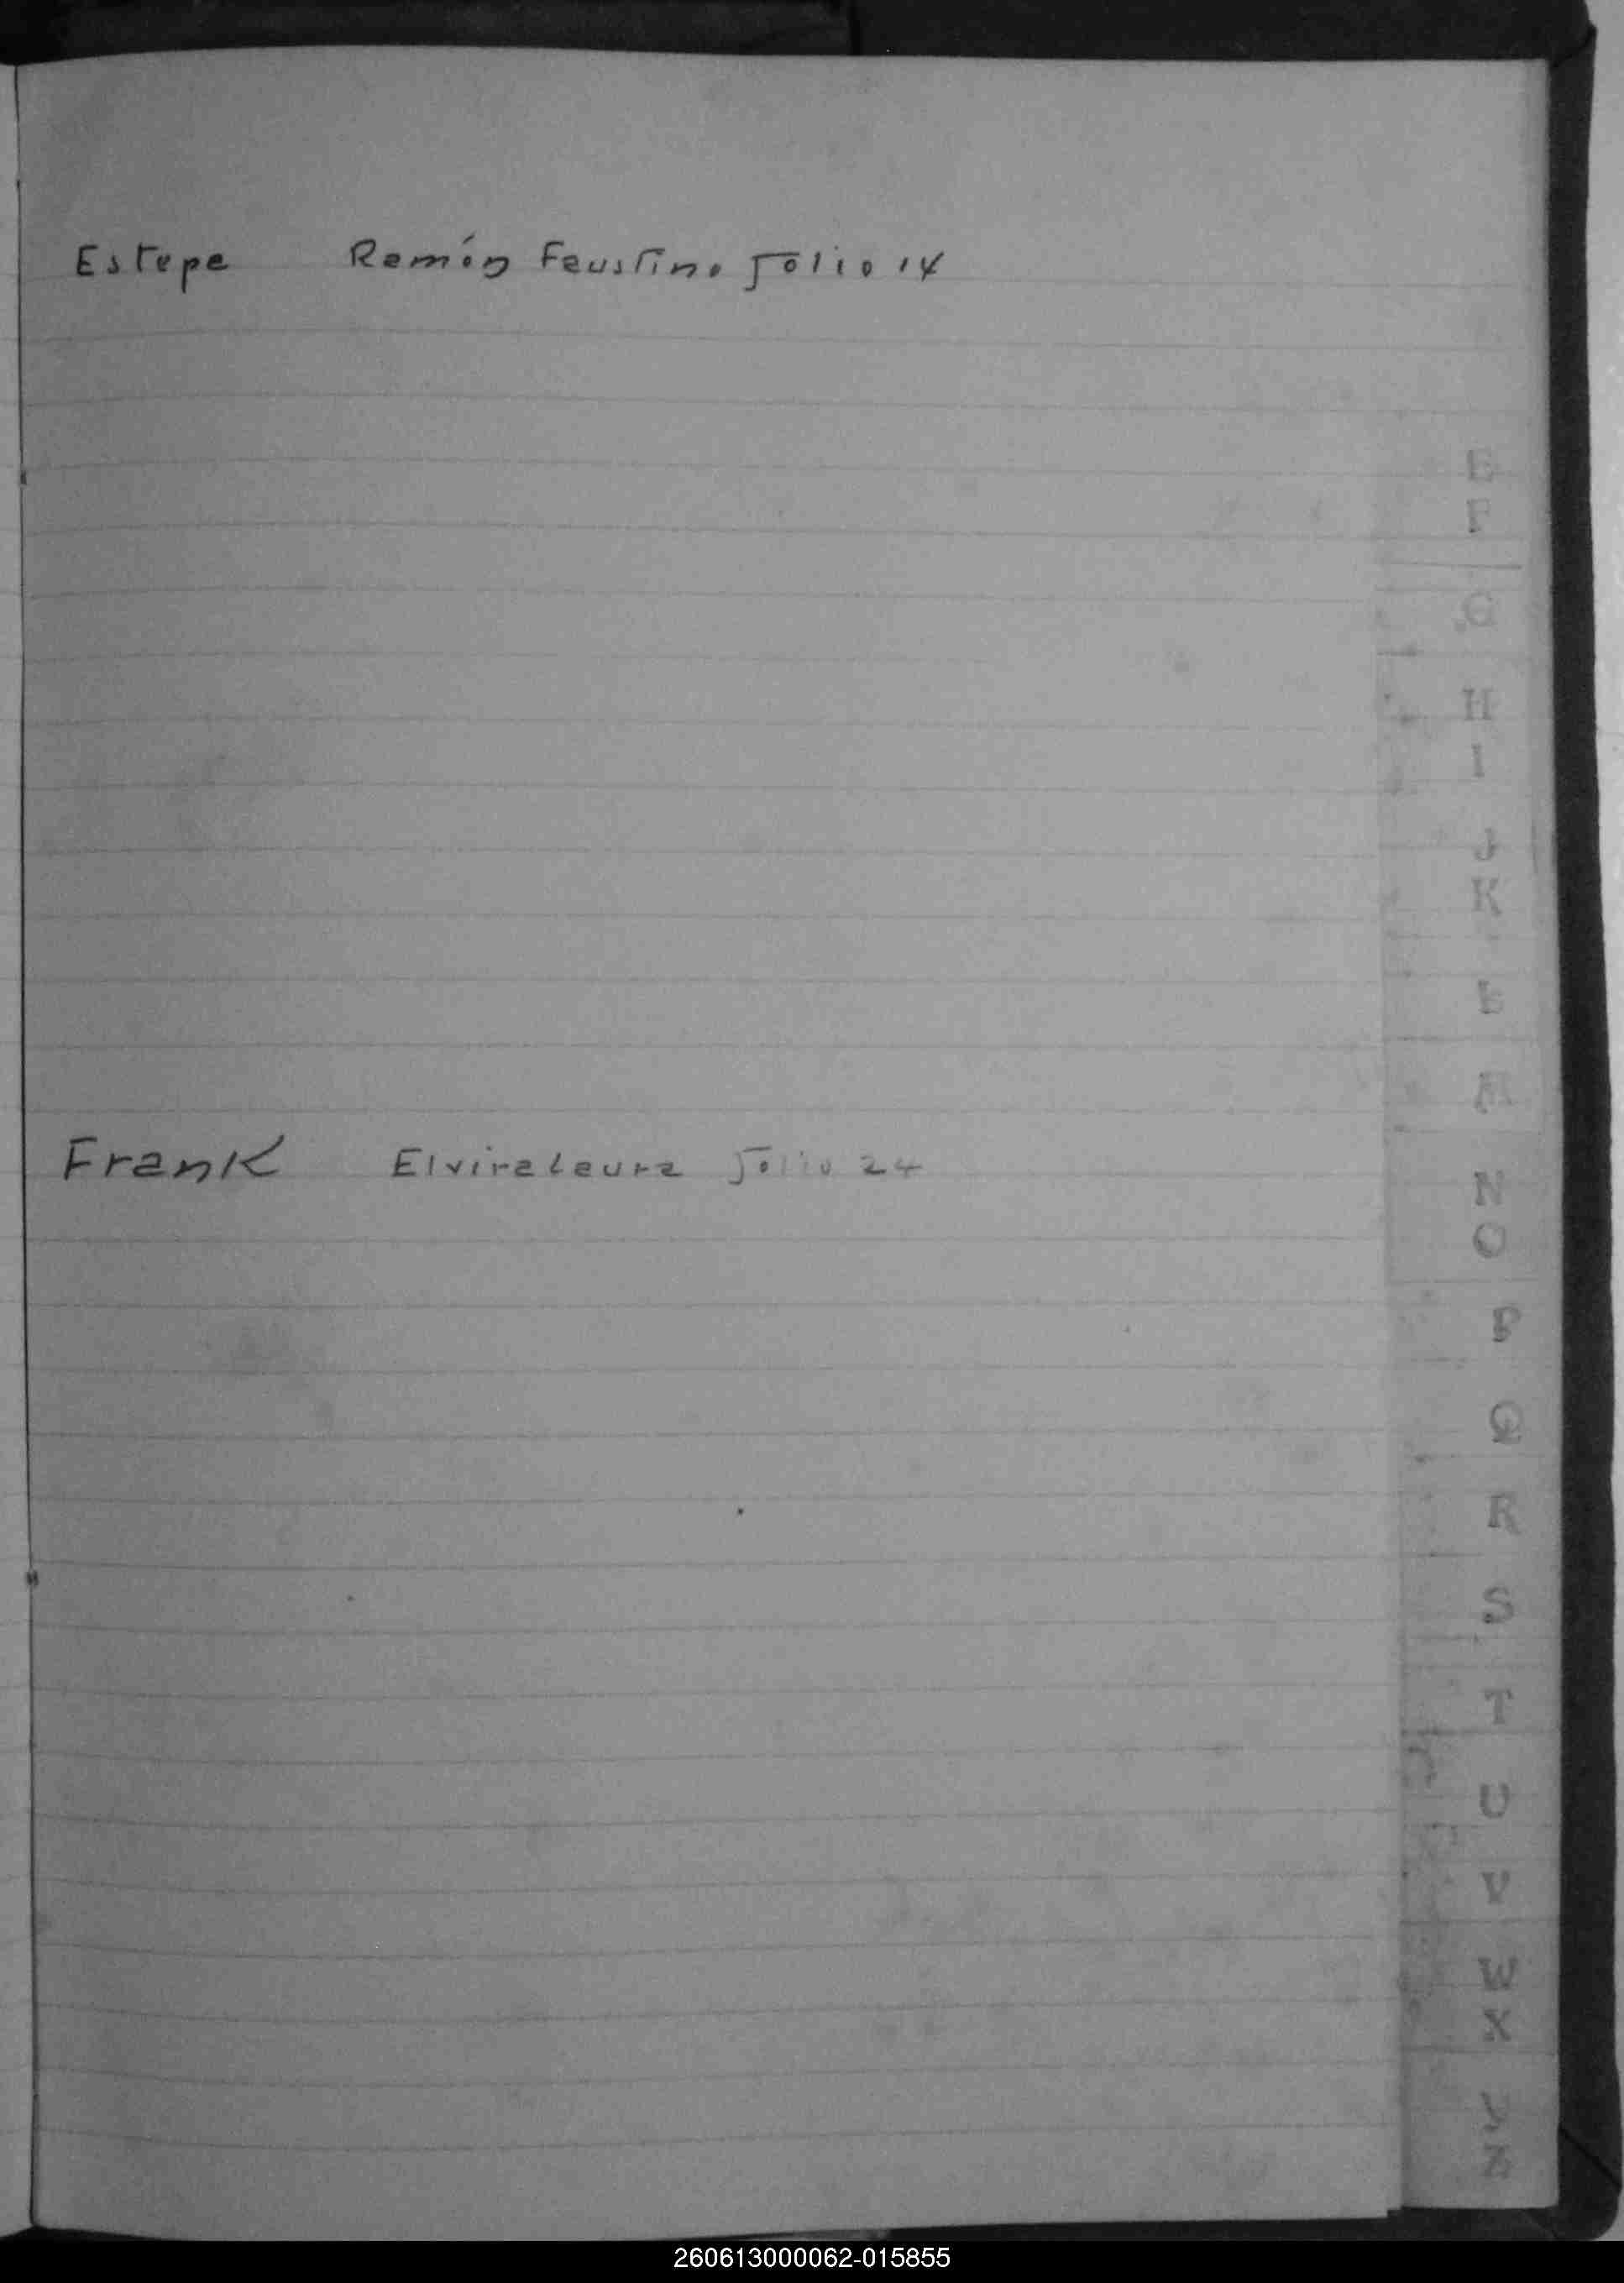 Estepe Ramón Faustino folio 14
E
F
G
H
I
J
K
L
M
Frank Elvira Laura folio 24
N
O
P
Q
R
S
T
U
V
W
X
Y
Z
260613000062-015855